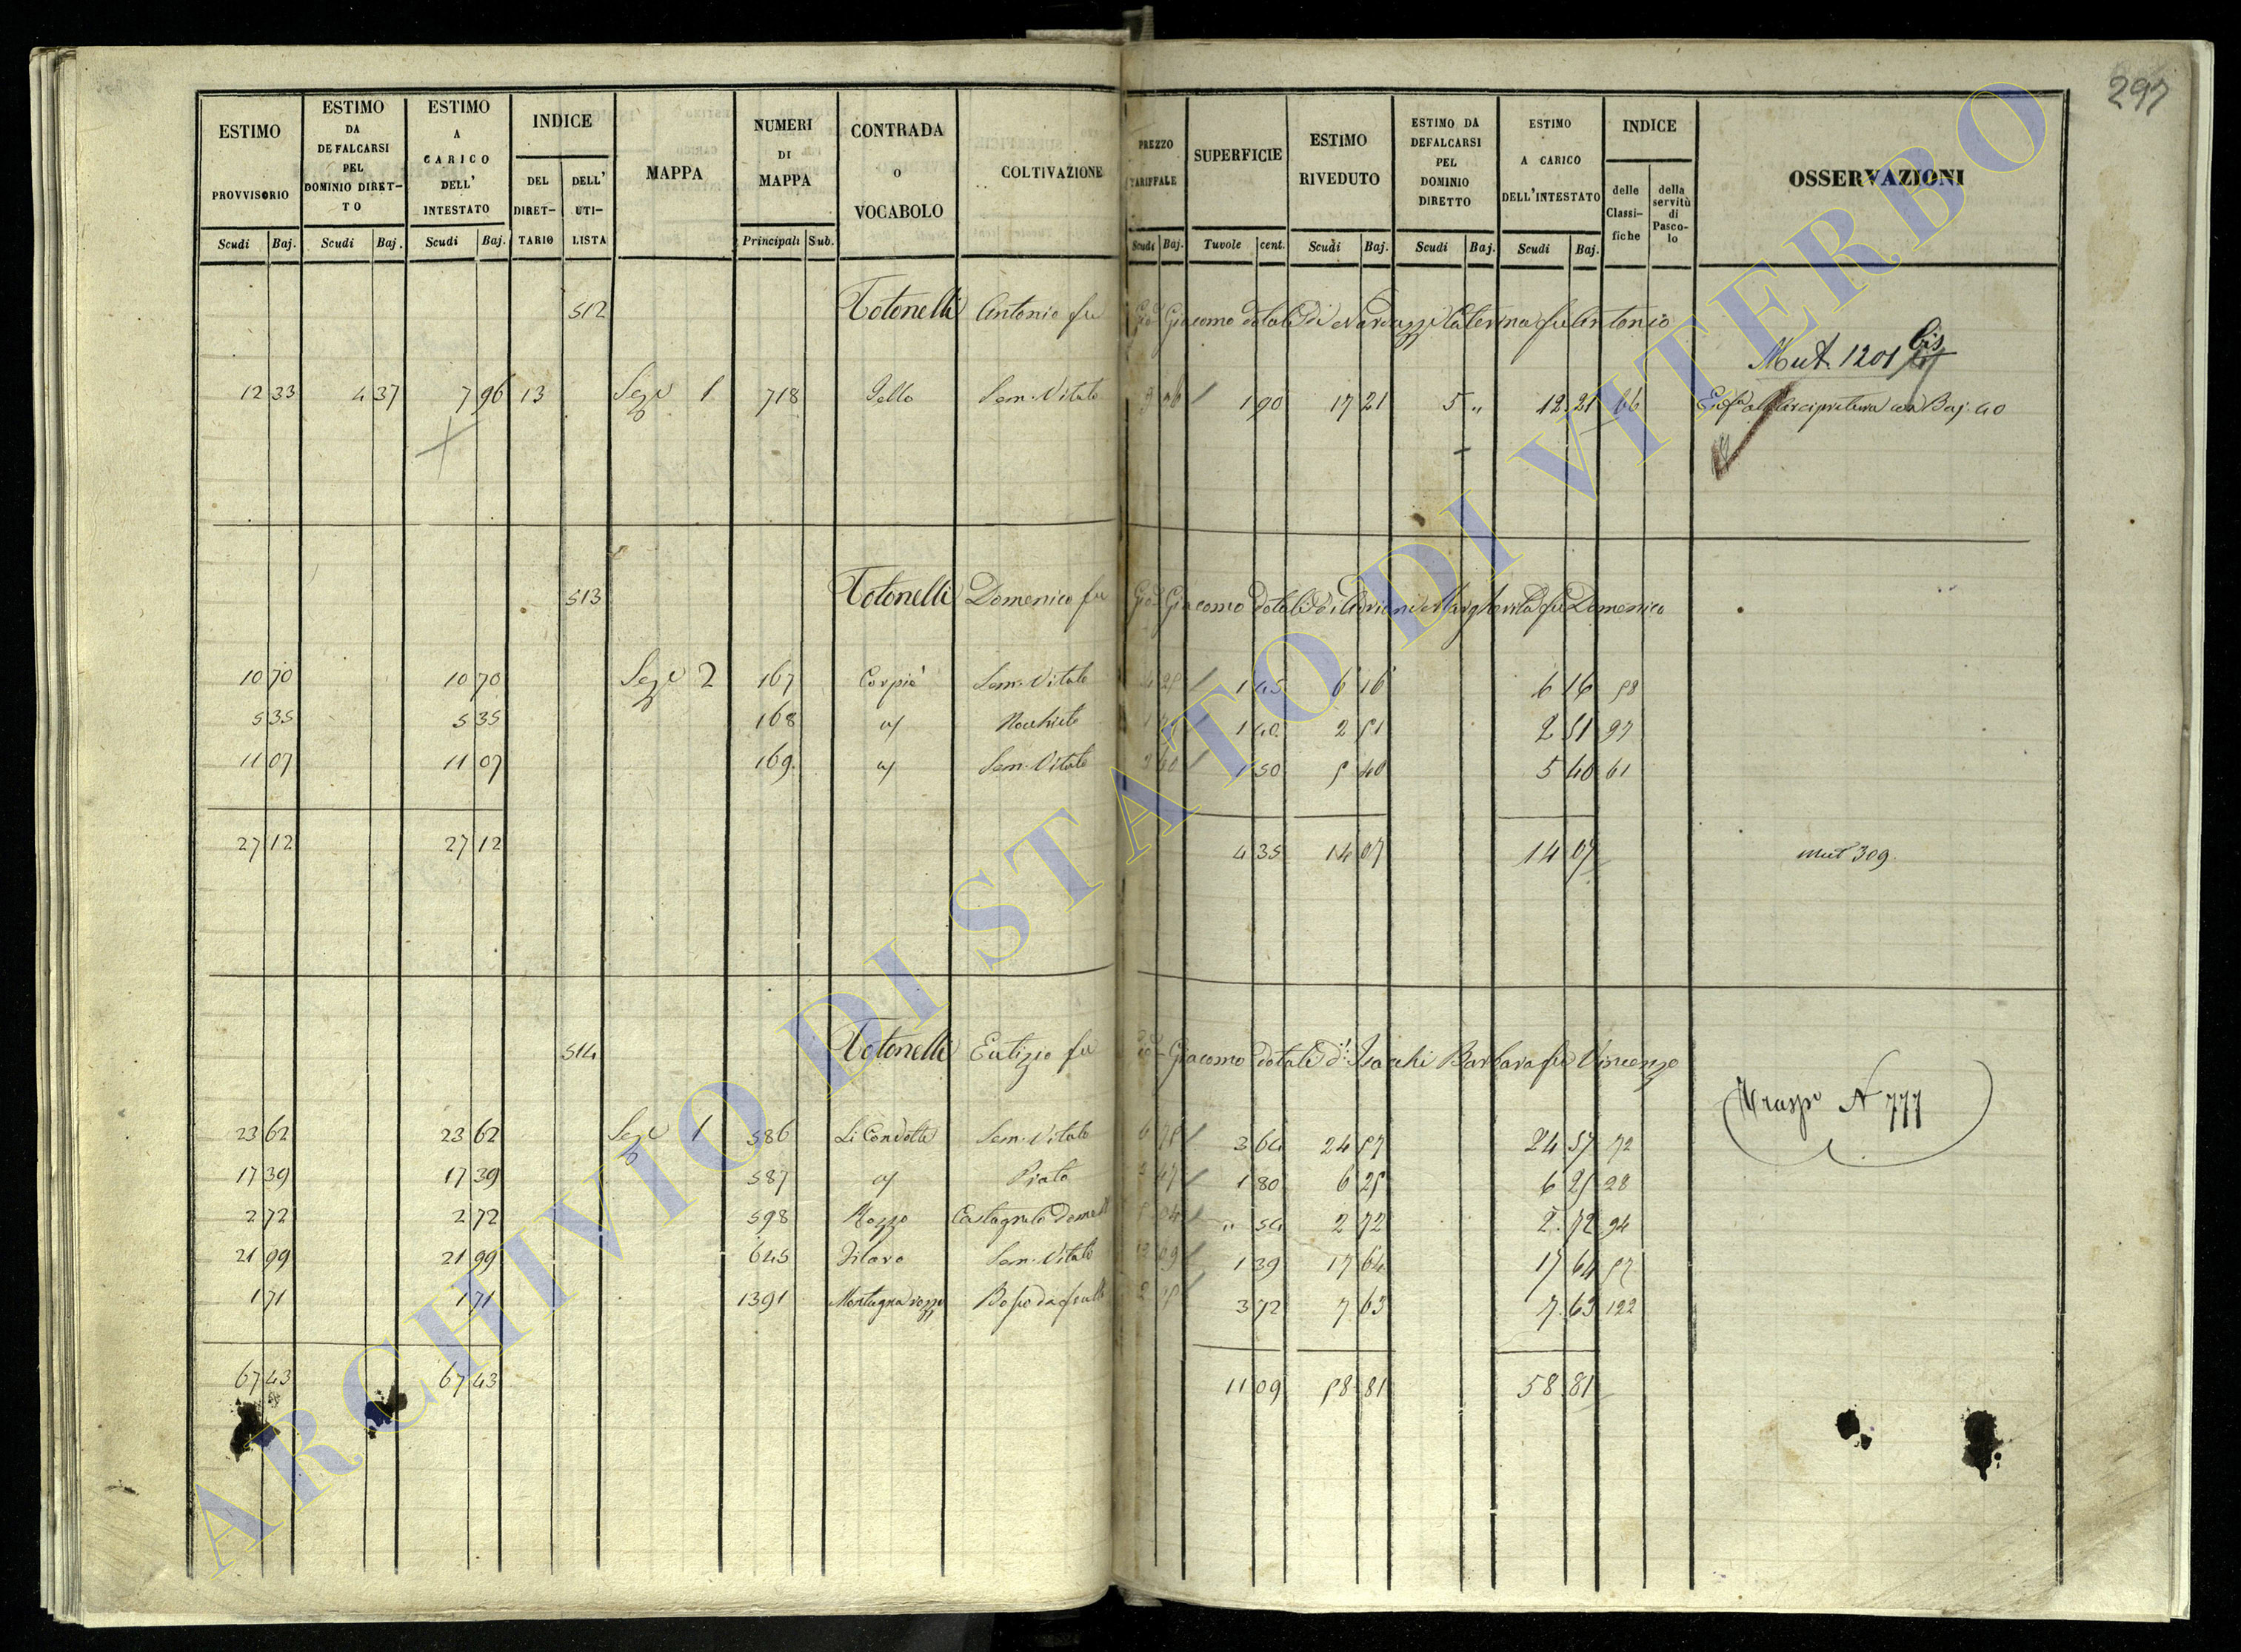 297
ESTIMO PROVVISORIO Scudi Baj.
ESTIMO DA DEFALCARSI PEL DOMINIO DIRET-TO Scudi Baj.
ESTIMO A CARICO DELL' INTESTATO Scudi Baj.
INDICE DEL DIRET-TARIO DELL' UTI-LISTA
MAPPA
NUMERI DI MAPPA Principali Sub.
CONTRADA O VOCABOLO
COLTIVAZIONE
PREZZO TARIFFALE Scudi Baj.
SUPERFICIE Tavole cent.
ESTIMO RIVEDUTO Scudi Baj.
ESTIMO DA DEFALCARSI PEL DOMINIO DIRETTO Scudi Baj.
ESTIMO A CARICO DELL'INTESTATO Scudi Baj.
INDICE delle Classi-fiche della servitù di Pasco-lo
OSSERVAZIONI
512 Totonelli Antonio fu Giacomo dotali di Narduzzi Caterina fu Antonio
Mut. 1201 bis
12 33 4 37 7 96 13 Sez e 1 718 Sem. Vitato 1 90 17 21 5 „ 12 21 66 Arcipretura con Baj. 40
513 Totonelli Domenico fu Giacomo dotali di Adriani Margherita fu Domenico
10 70 10 70 Sez e 2 167 Carpiè Sem. Vitato 1 45 6 16 6 16 58
5 35 5 35 168 Nocchieto 1 40 2 51 2 51 97
11 07 11 07 169 Sem. Vitato 1 50 5 40 5 40 61
27 12 27 12 4 35 14 07 14 07 mut 309
514 Totonelli Eutizio fu Giacomo dotali d' Isacchi Barbara fu Vincenzo
N 777
23 62 23 62 Sez e 1 586 Li Condotti Sem. Vitato 3 64 24 57 24 57 72
17 39 17 39 587 Prato 1 80 6 25 6 25 28
2 72 2 72 598 Rozzo Castagneto Domest „ 54 2 72 2 72 94
21 99 21 99 645 Filaro Sem. Vitato 1 39 17 64 17 64 57
1 71 1 71 1391 Montagna Bosco da frutto 3 72 7 63 7 63 122
67 43 67 43 11 09 58 81 58 81
ARCHIVIO DI STATO DI VITERBO